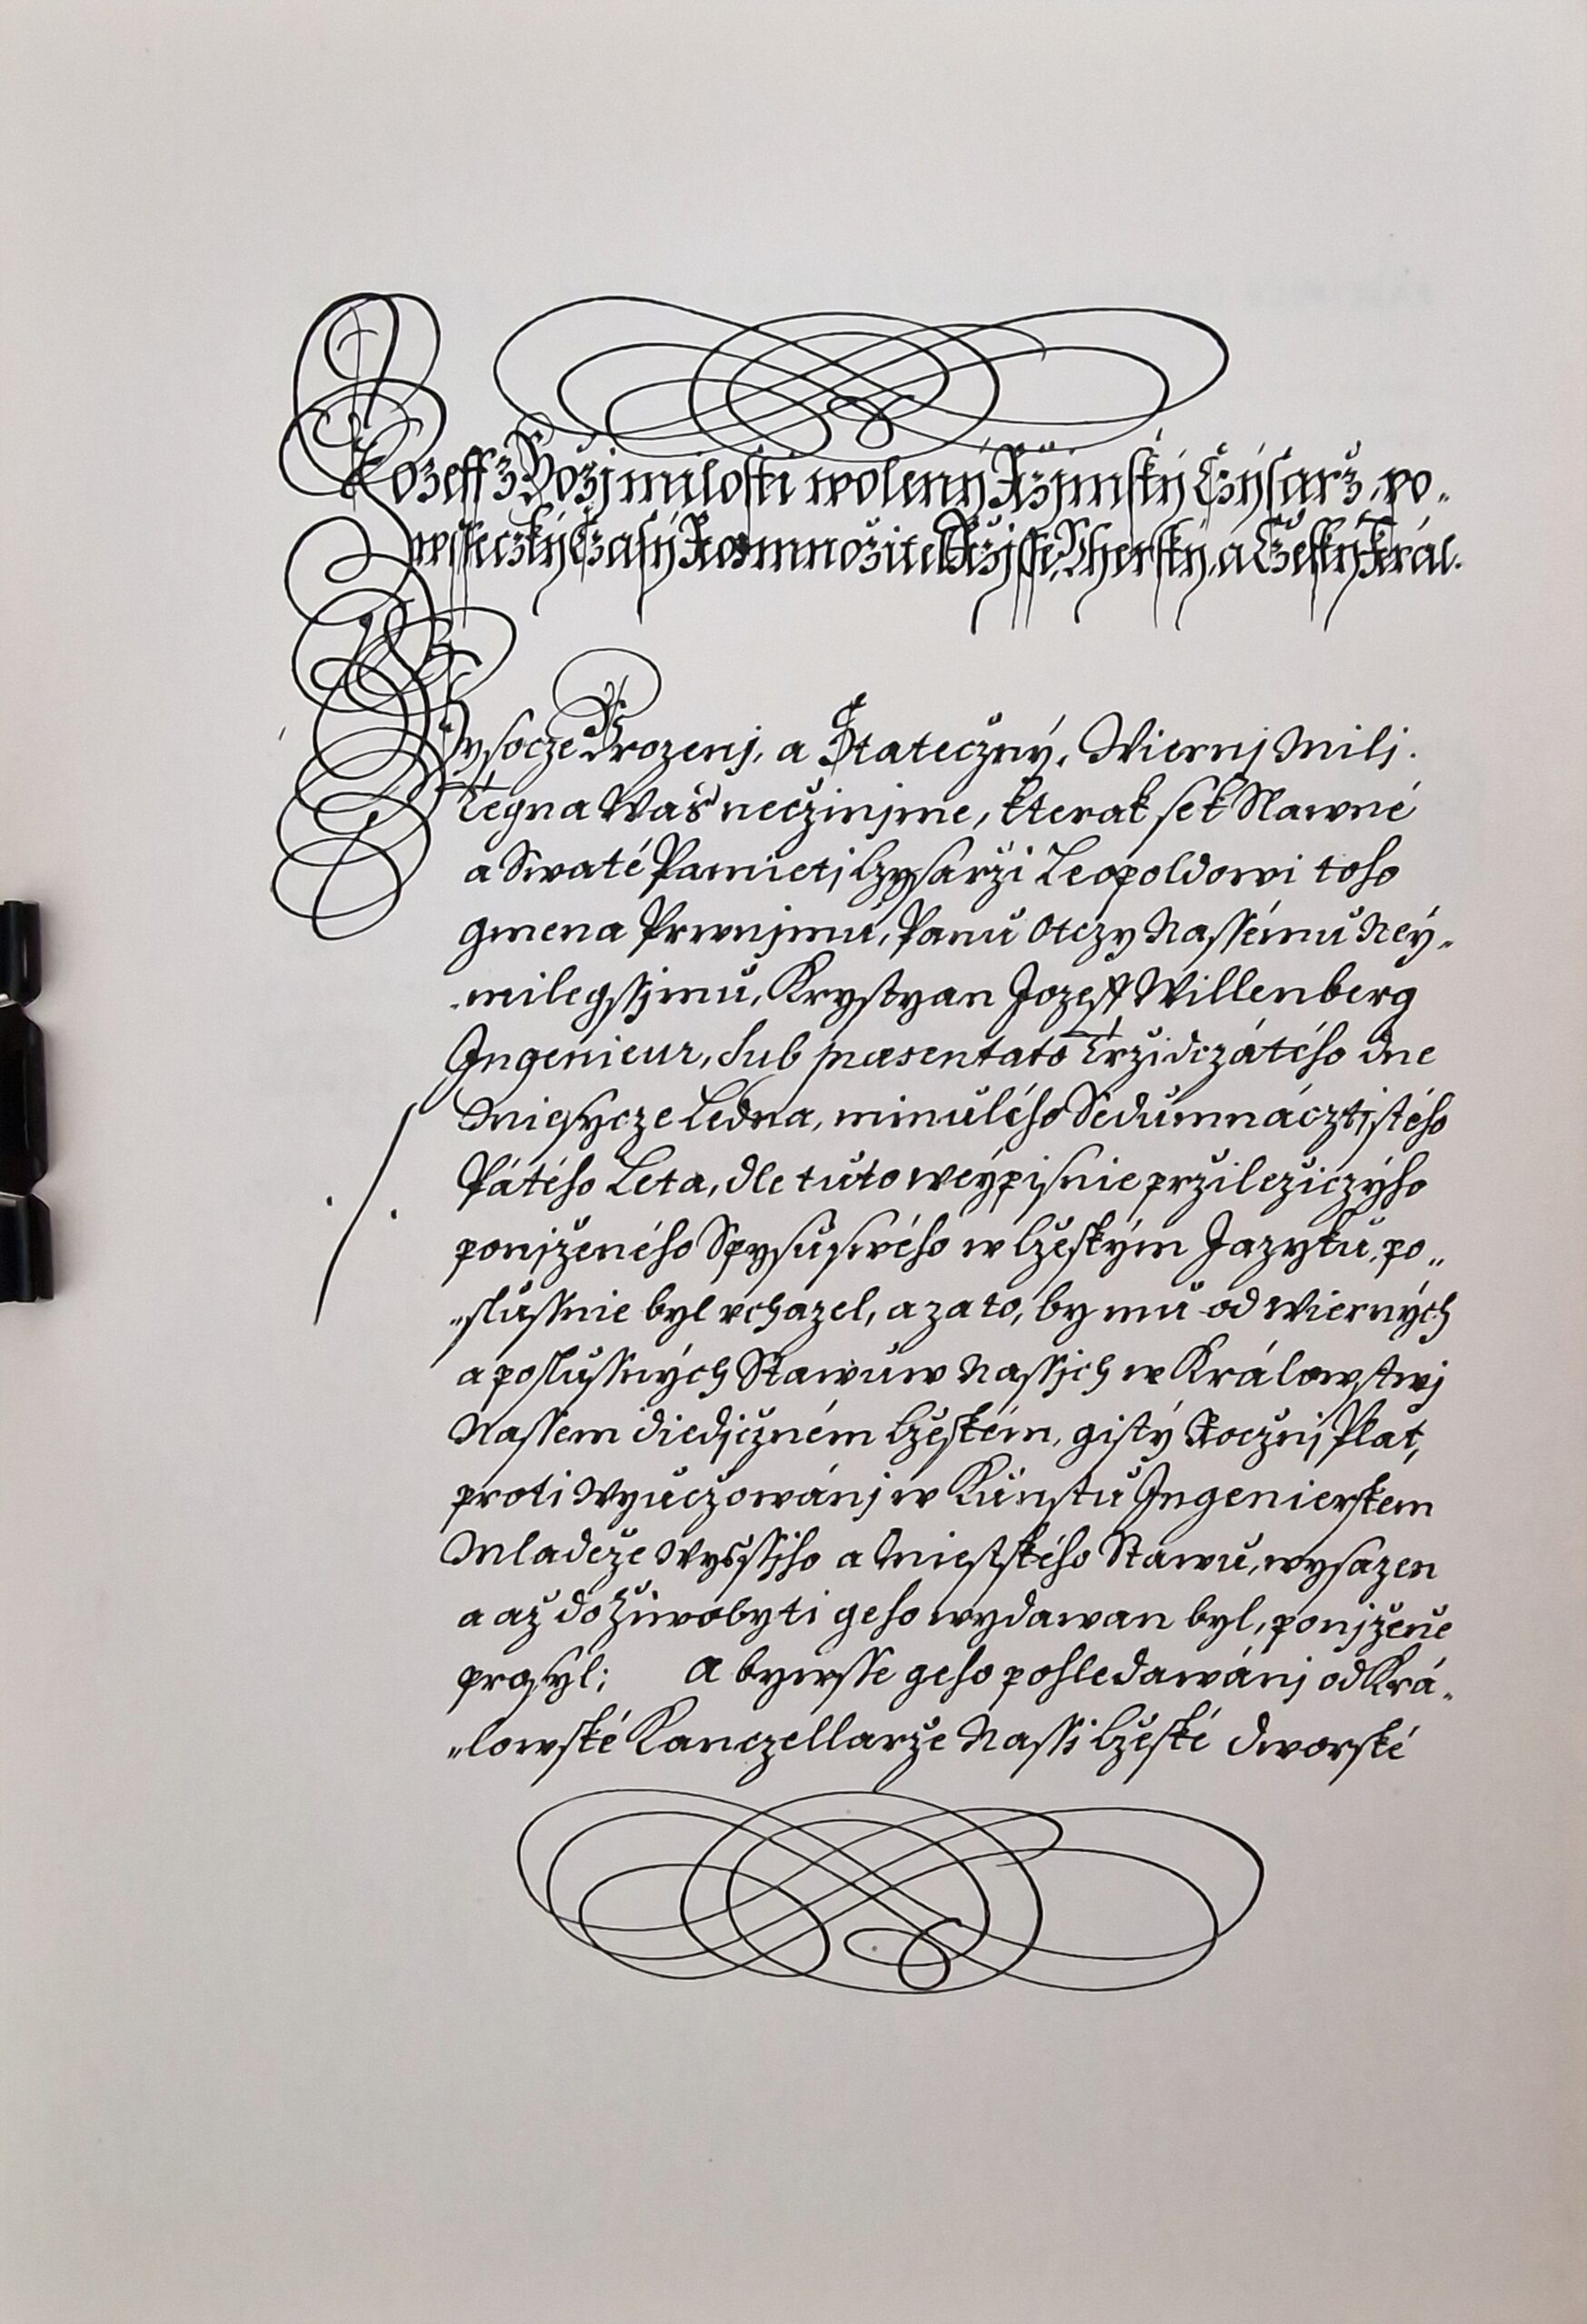 Jozeff z Boži milosti wolený Ržimský Czýsarž, po„
wsseczký Czasý Rozmnožitel Ržjsse, Vherský, a Czeský Král.
Wysocze Vrozenj, a Statečzný, Wiernj Milj.
Tegna Was nečzinjme, kterak se k Slawné
a Swaté Pamieti Czysarži Leopoldowi toho
gmena Prwnjmu, Panu Otczy Nassému Neý„
„milegssjmu, Krystyan Jozeff Willenberg
Ingenieur, sub præsentato Tržidczátého dne
Miesycze Ledna, minulého Sedumnácztistého
Pátého Leta, dle tuto weýpisnie pržiležiczýho
ponjženého Spysu swého w Czeským Jazyku, po„
„slussnie byl vchazel, a za to, by mu od Wierných
a poslussných Stawuw Nassich w Králowstwj
Nassem diedičzném Czeském, gistýRočznj Plat,
proti Wyučzowánj w Kunstu Ingenierskem
Mladeže Wyšssjho a Miestského Stawu, wysazen
a až do žiwobyti geho wydawan byl, ponjženě
prosyl; A bywsse geho pohledawánj od Krá„
„lowské Kanczellarže Nassi Czeské Dworské